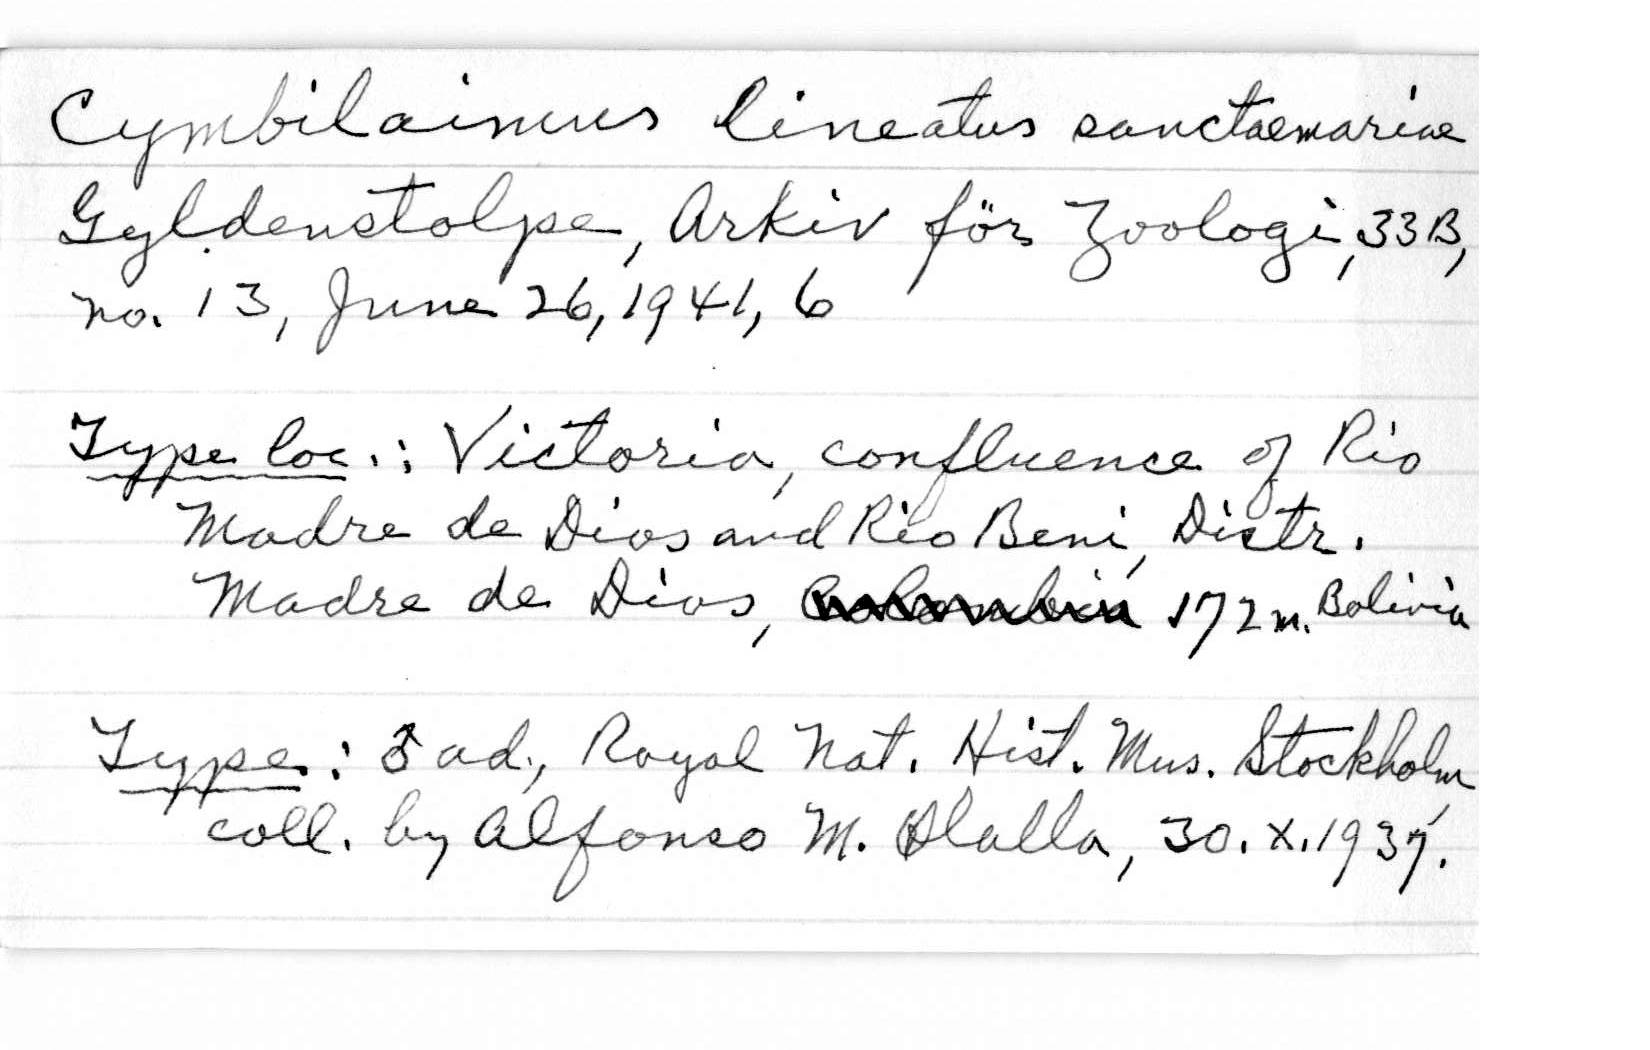 Cymbilaimus lineatus sanctaemariae
Gyldenstolpe, Arkiv för Zoologi, 33B,
no. 13, June 26, 1941, 6
Type loc.: Victoria, confluence of Rio
Madre de Dios and Rio Beni, Distr.
Madre de Dios, Colombia 172 m. Bolivia
Type: ♂ ad., Royal Nat. Hist. Mus. Stockholm
coll. by Alfonso M. Olalla, 30.X.1937.